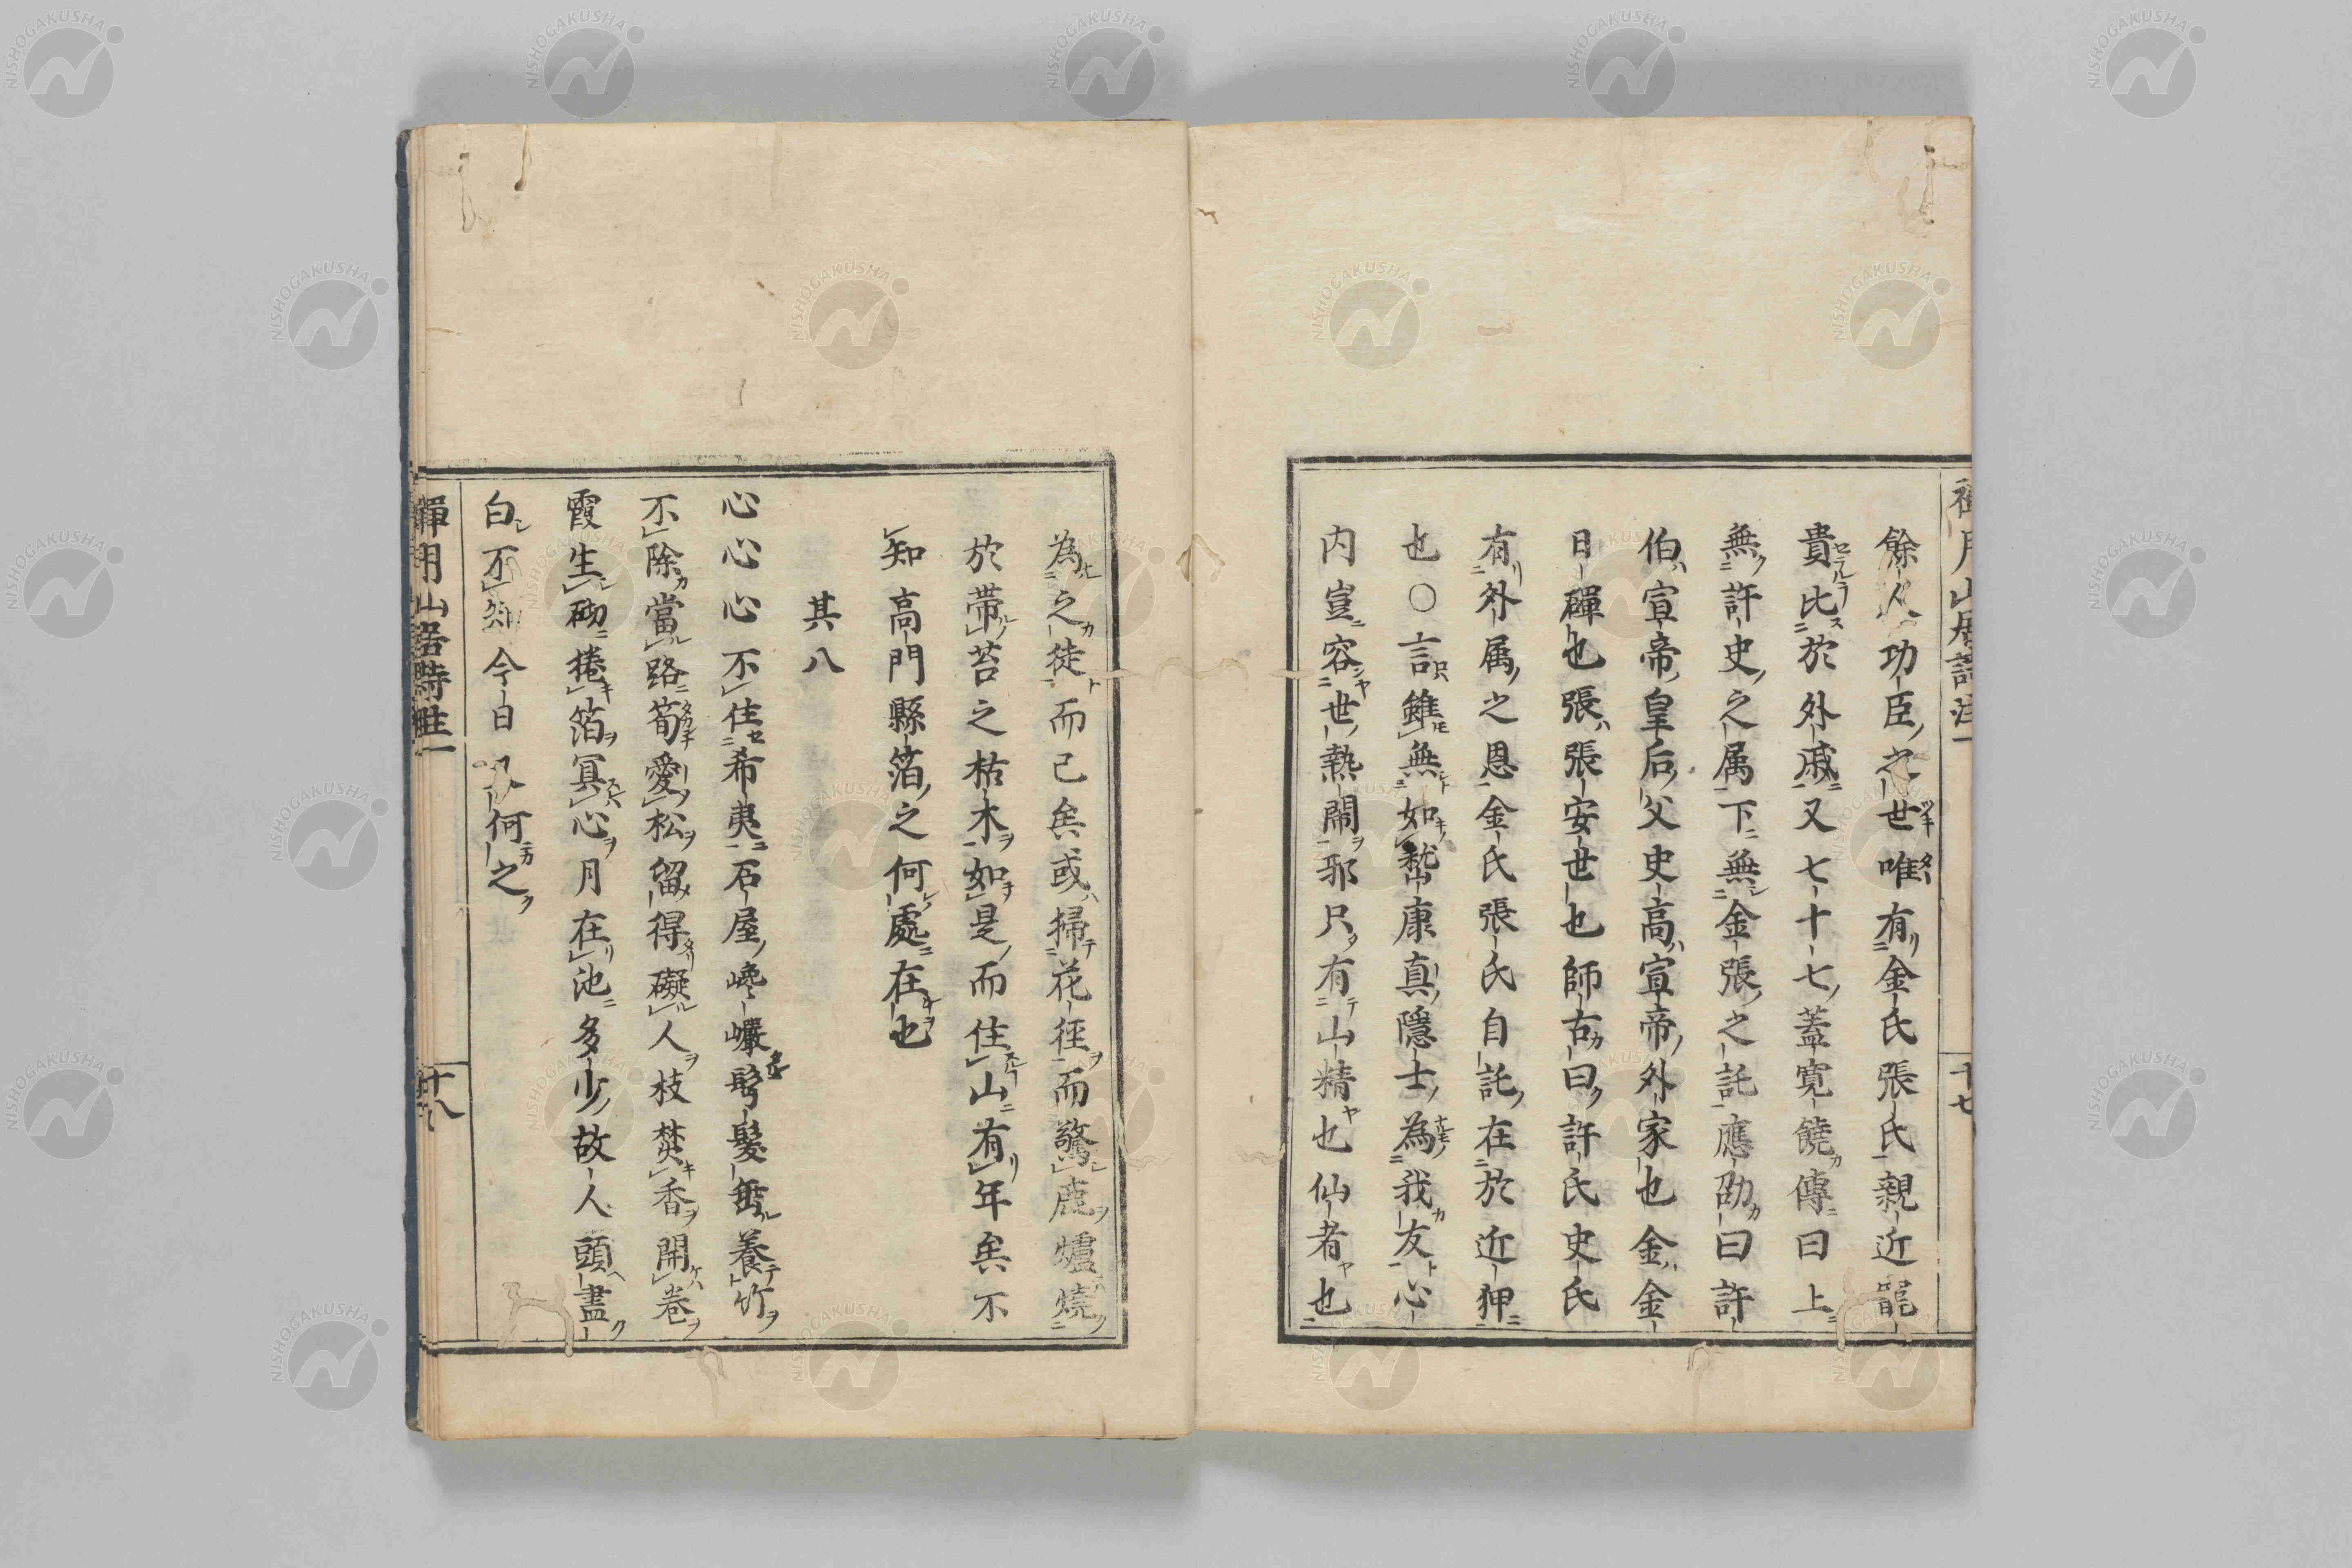 餘人功臣之世唯有金氏張氏親近寵
貴比於外戚又七十七蓋寛饒傳曰上
無許史之属下無金張之託應劭曰許
伯宣帝皇后父史高宣帝外家也金金
日磾也張張安世也師古曰許氏史氏
有外属之恩金氏張氏自託在於近狎
也○言雖無如嵆康真隠士為我友心
内豈容世熱鬧邪只有山精也仙者也
十七
為之徒而已矣或掃花徑而驚鹿爐燒
於帯苔之枯木如是而住山有年矣不
知高門縣箔之何處在也
其八
心心心不住希夷石屋巉巗髩髮垂養竹
不除當路筍愛松留得礙人枝焚香開卷
霞生砌捲箔冥心月在池多少故人頭盡
白不知今日又何之
禪月山居詩註一
十八
NISHOGAKUSHA